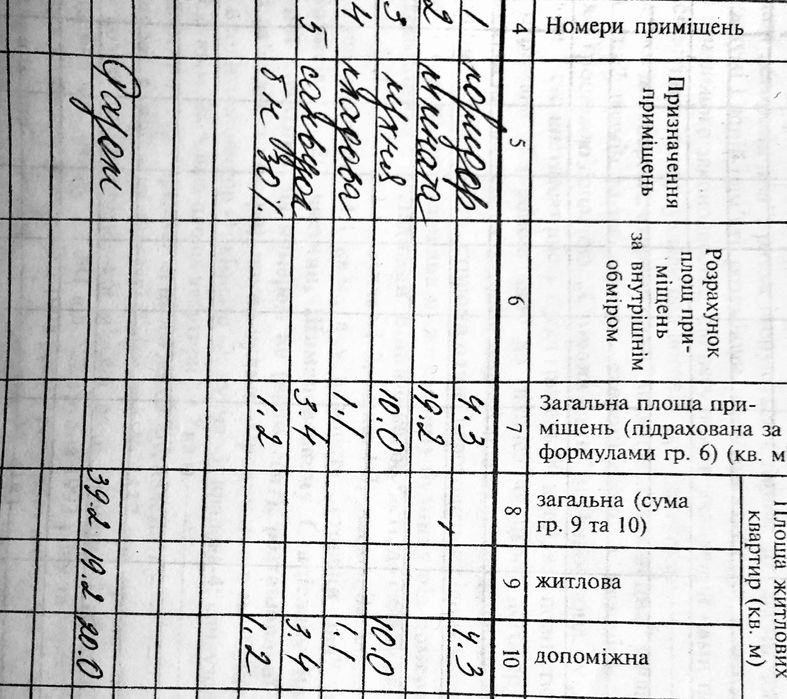 Номери приміщень
Призначення
приміщень
Розрахунок
площ при-
міщень
за внутрішнім
обміром
Загальна площа при-
міщень (підрахована за
формулами гр. 6) (кв. м
Площа житлових
квартир (кв. м)
загальна (сума
гр. 9 та 10)
житлова
допоміжна
4 5 6 7 8 9 10
1 коридор 4.3 4.3
2 кімната 19.2
3 кухня 10.0 10.0
4 кладова 1.1 1.1
5 санвузол 3.4 3.4
б н 1.2 1.2
Разом 39.2 19.2 20.0